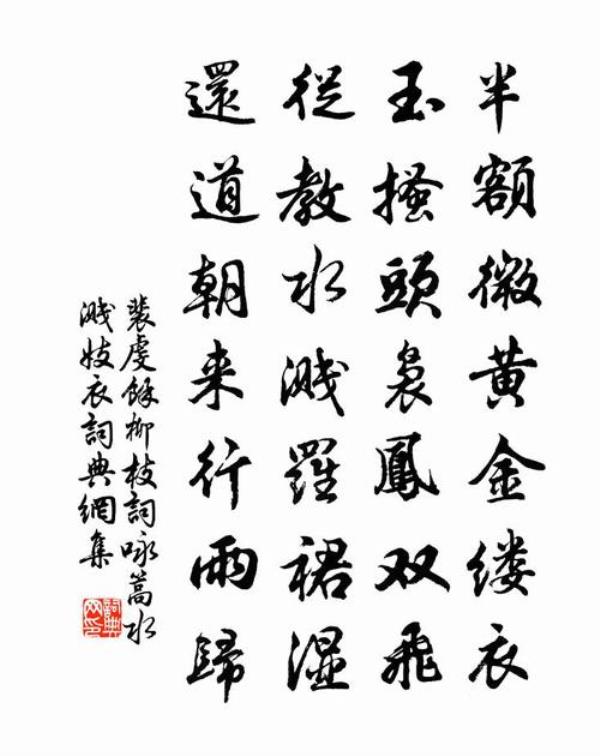 半額微黄金缕衣
玉搔頭裊鳳双飛
從教水溅羅裙濕
還道朝来行雨歸
裴虔餘柳枝詞咏篙水
溅妓衣詞典網集
詞典网印